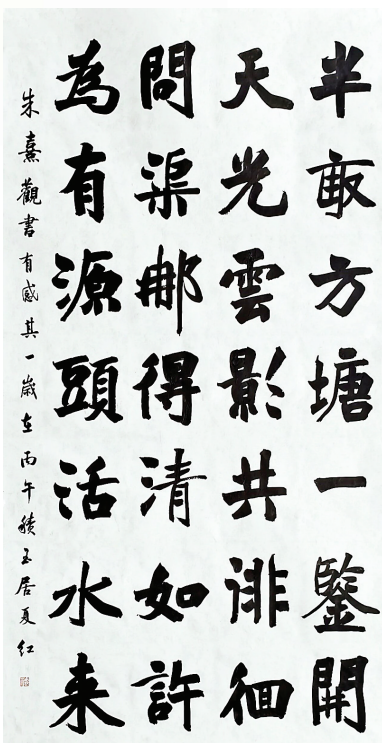 半畝方塘一鑒開
天光雲影共徘徊
問渠那得清如許
為有源頭活水来
朱熹觀書有感其一歲在丙午積玉居夏红